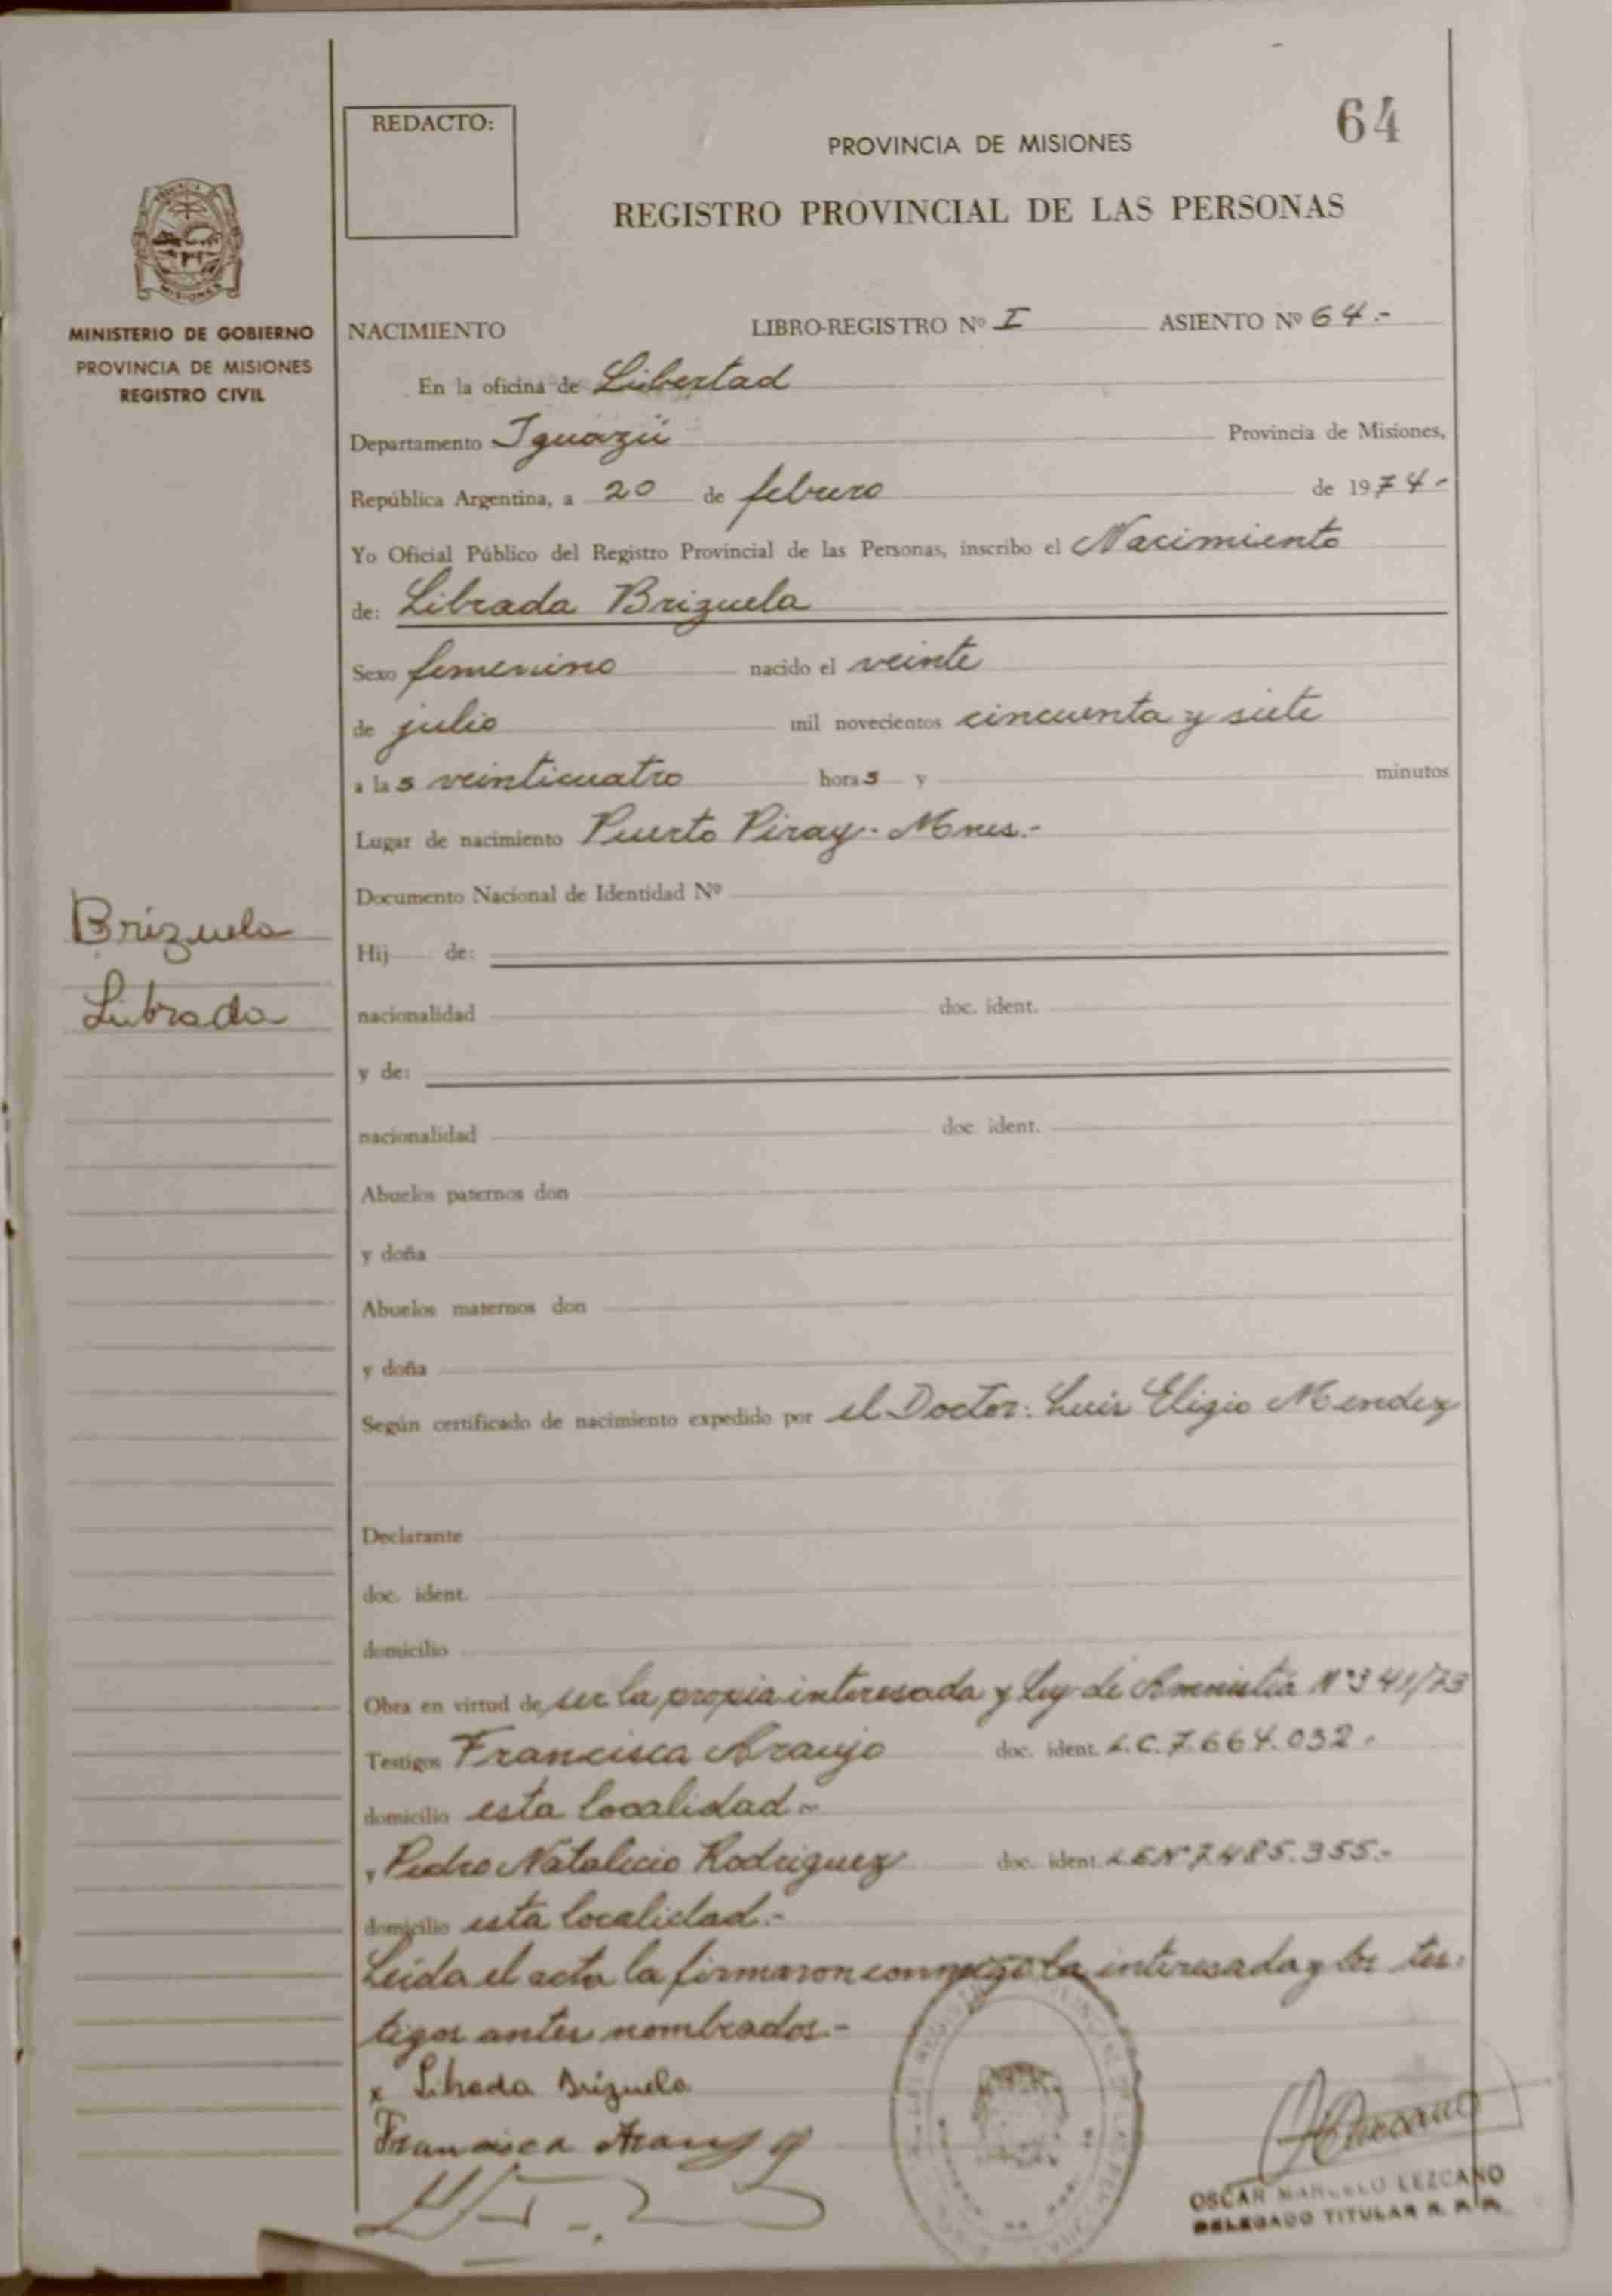 64
REDACTO:
PROVINCIA DE MISIONES
REGISTRO PROVINCIAL DE LAS PERSONAS
MISIONES
MINISTERIO DE GOBIERNO
PROVINCIA DE MISIONES
REGISTRO CIVIL
NACIMIENTO LIBRO-REGISTRO Nº I ASIENTO Nº 64.-
En la oficina de Libertad
Departamento Iguazú Provincia de Misiones,
República Argentina, a 20 de febrero de 1974-
Yo Oficial Público del Registro Provincial de las Personas, inscribo el Nacimiento
de: Librada Brizuela
Sexo femenino nacido el veinte
de julio mil novecientos cincuenta y siete
a las veinticuatro horas y minutos
Lugar de nacimiento Puerto Piray- Mnes.-
Documento Nacional de Identidad Nº
Brizuela
Librada
Hij de:
nacionalidad doc. ident.
y de:
nacionalidad doc. ident.
Abuelos paternos don
y doña
Abuelos maternos don
y doña
Según certificado de nacimiento expedido por el Doctor: Luis Eligio Mendez
Declarante
doc. ident.
domicilio
Obra en virtud de ser la propia interesada y Ley de Amnistia Nº 341/73
Testigos Francisca Araujo doc. ident. L.C. 7.664.032.
domicilio esta localidad-
y Pedro Natalicio Rodriguez doc. ident. L.E Nº 7.485.355.-
domicilio esta localidad.-
Leida el acta la firmaron conmigo la interesada y los tes-
tigos antes nombrados.-
x Librada Brizuela
Francisca Araujo
OSCAR MARCELO LEZCANO
DELEGADO TITULAR R. P. P.